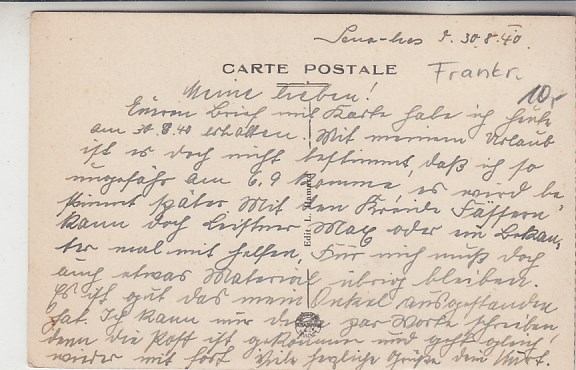 d. 30.8.40.
CARTE POSTALE
Frankr.
10,-
Meine lieben!
Euren Brief mit Karte habe ich heute
am 30.8.40 erhalten. Mit meinem Urlaub
ist es doch nicht bestimmt, daß ich so
ungefähr am 6.9 komme, es wird be
stimmt später Mit den Kreide Fässern
kann doch Leistner Max oder ein Bekan,
ter mal mit helfen, Für mich muß doch
auch etwas Material übrig bleiben.
Es ist gut das mein Onkel ausgestanden
hat. Ich kann nur die paar Worte schreiben
denn die Post ist gekommen und geht gleich
wieder mit fort Viele herzliche Grüße dein Kurt.
Edit